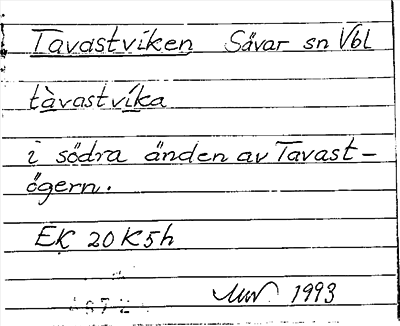 Tavastviken Sävar sn Vbl
tàvastvíka
i södra änden av Tavast-
ögern.
EK 20K5h
1993